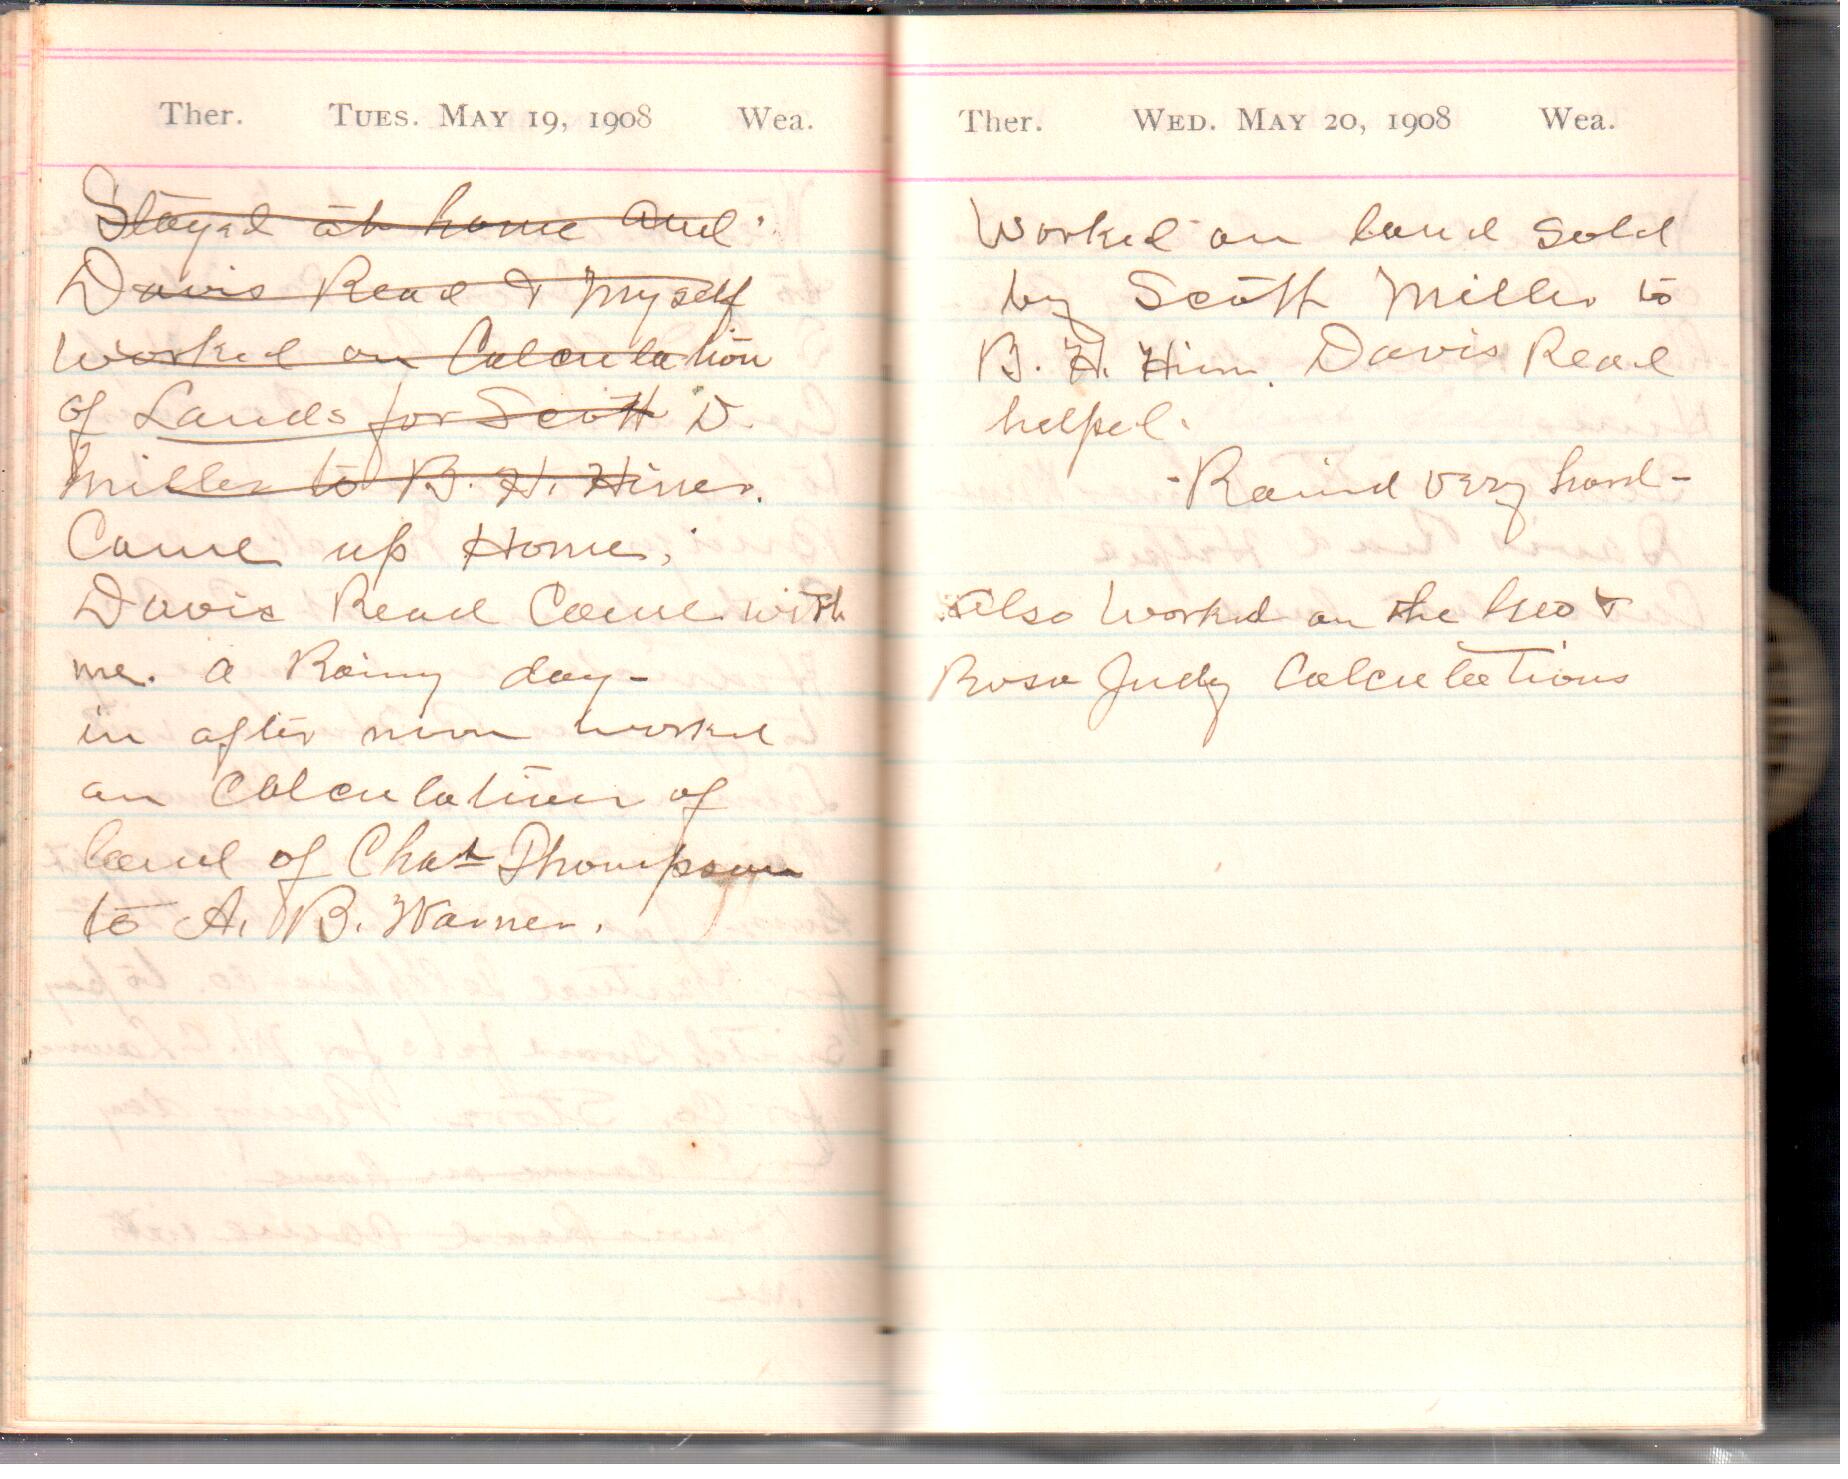 Ther. TUES. MAY 19, 1908 Wea.
Stayed at home and
Davis Read & Myself
Worked on Calculation
of Lands for Scott D.
Miller to B. H. Hiner.
Came up Home.
Davis Read Came with
me. a Rainy day-
in after noon worked
on Calculation of
land of Chas Thompson
to A. B. Warner.
Ther. WED. MAY 20, 1908 Wea.
Worked on land sold
by Scott Miller to
B. H. Hiner. Davis Read
helped.
-Raind very hard-
Also Worked on the Geo &
Rosa Judy Calculations